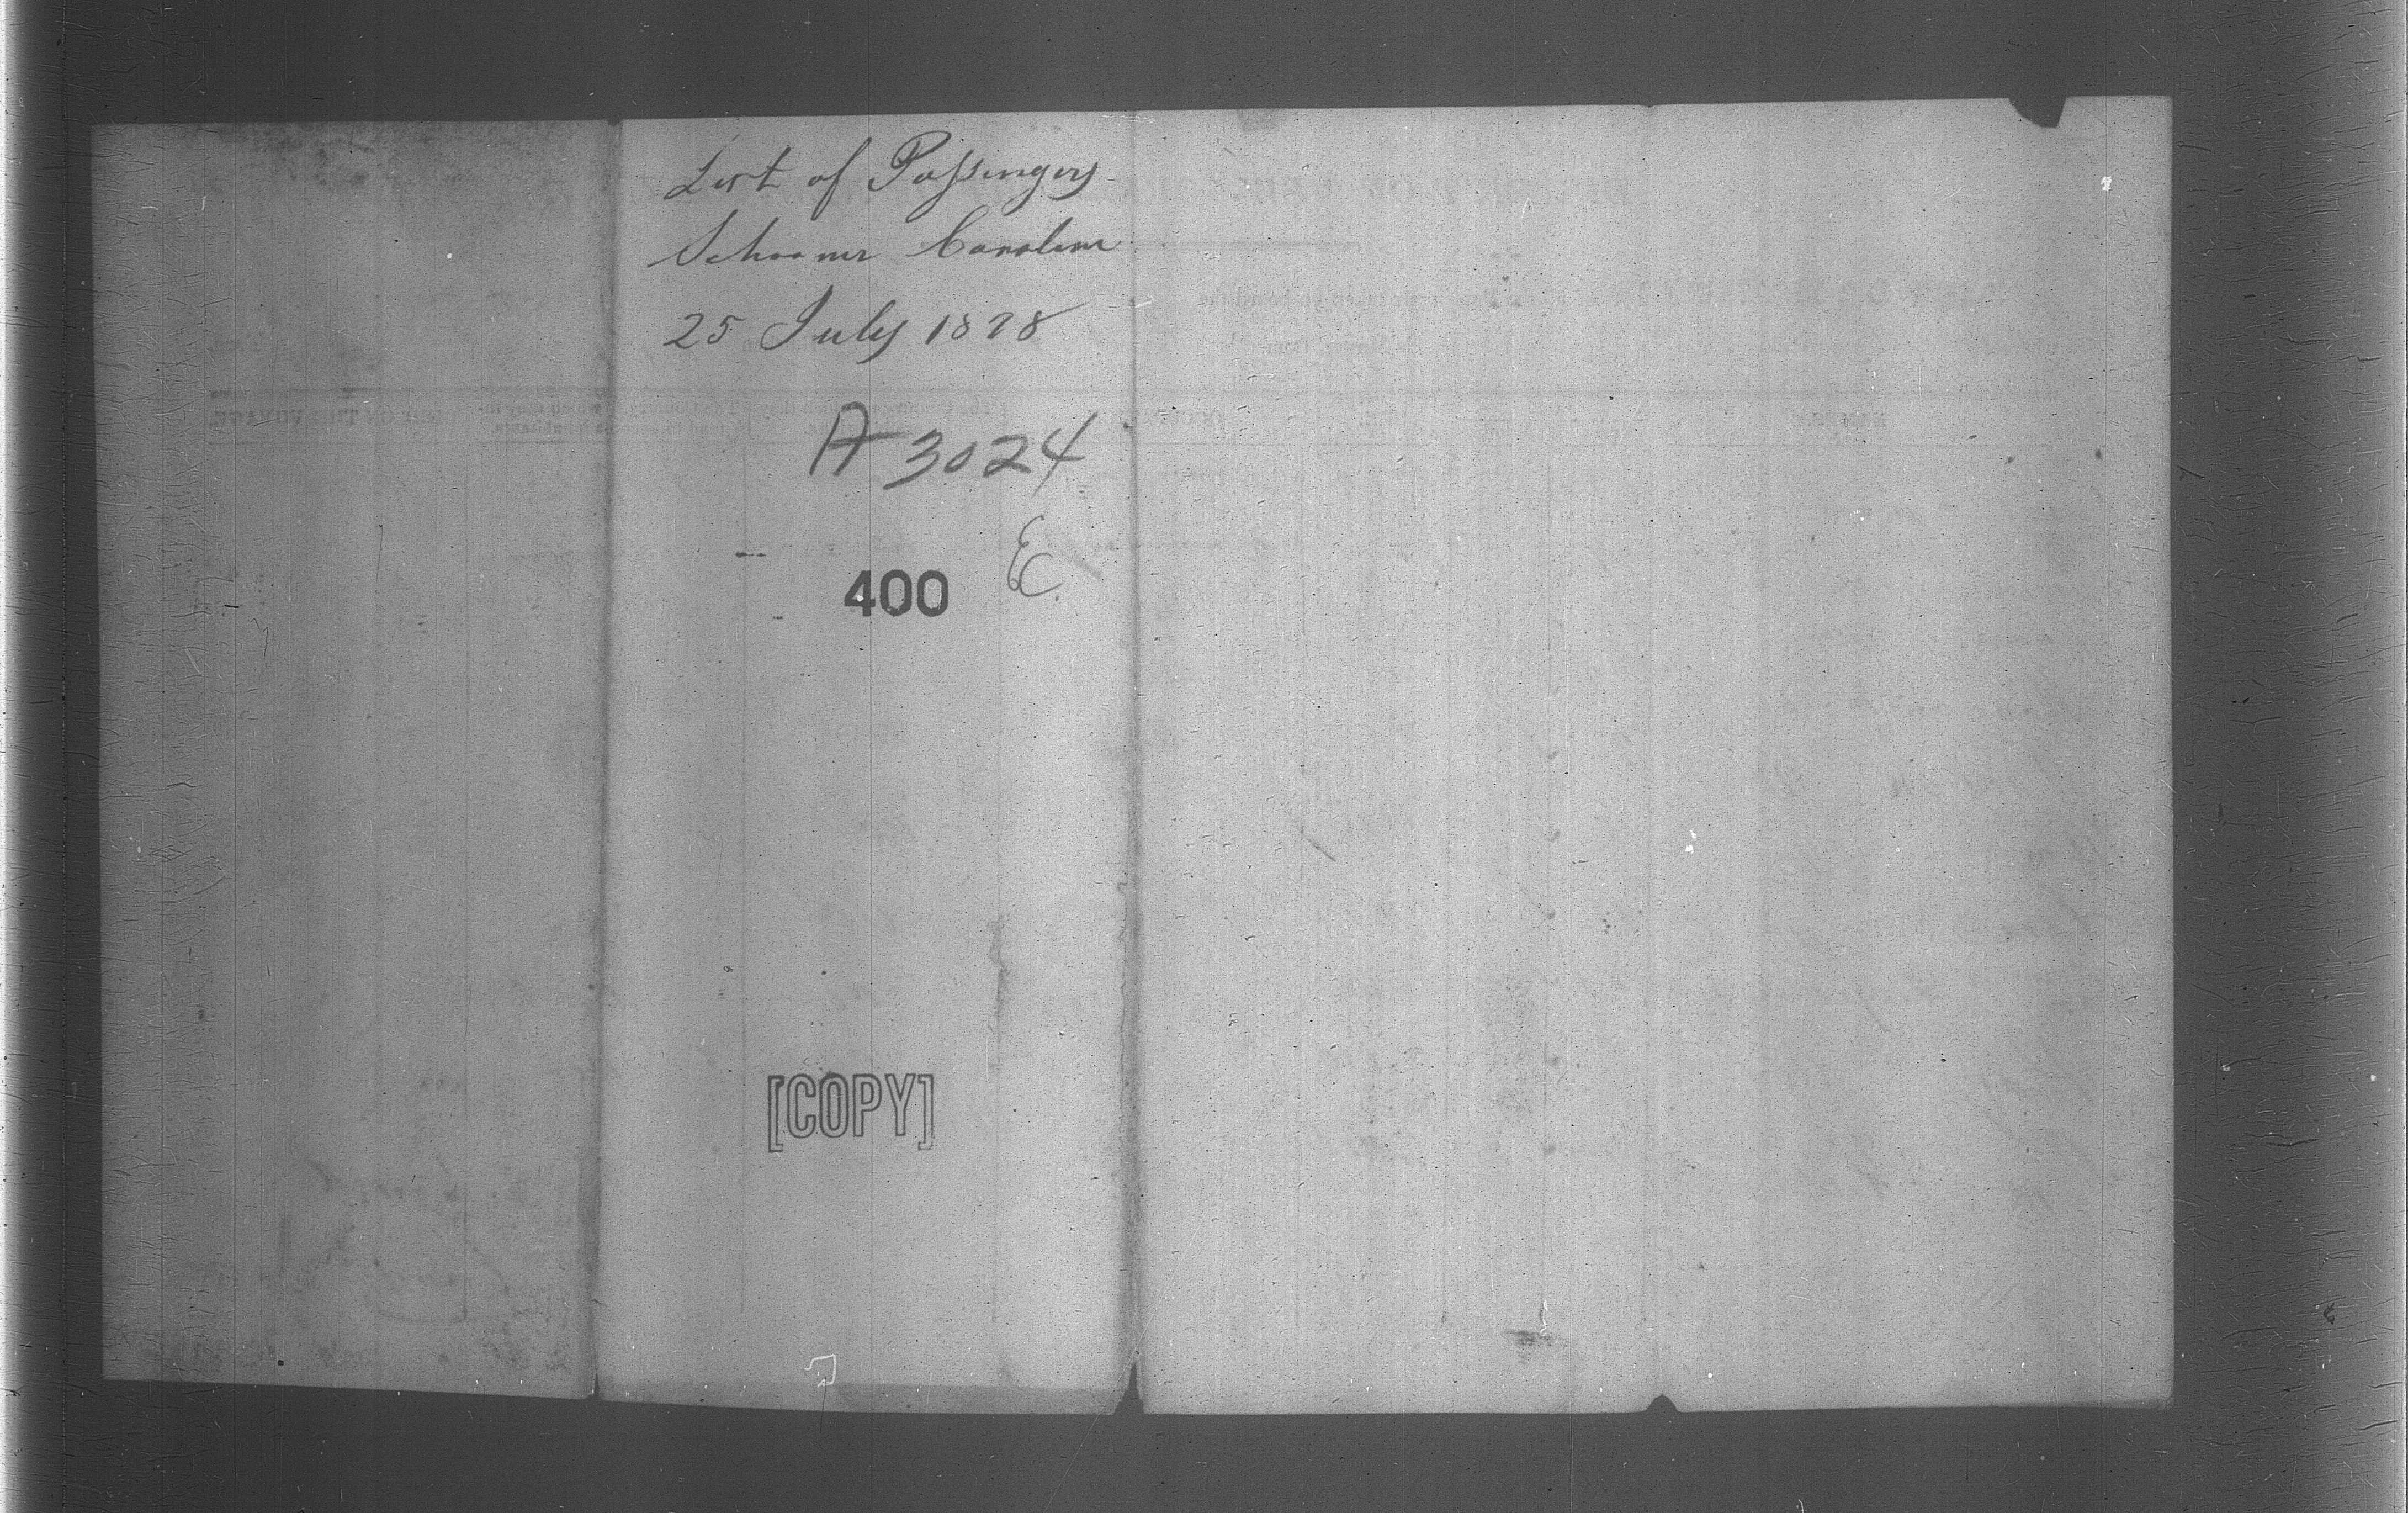 List of Passengers
Schooner Caroline
25 July 1878
A 3024
E
400
[COPY]